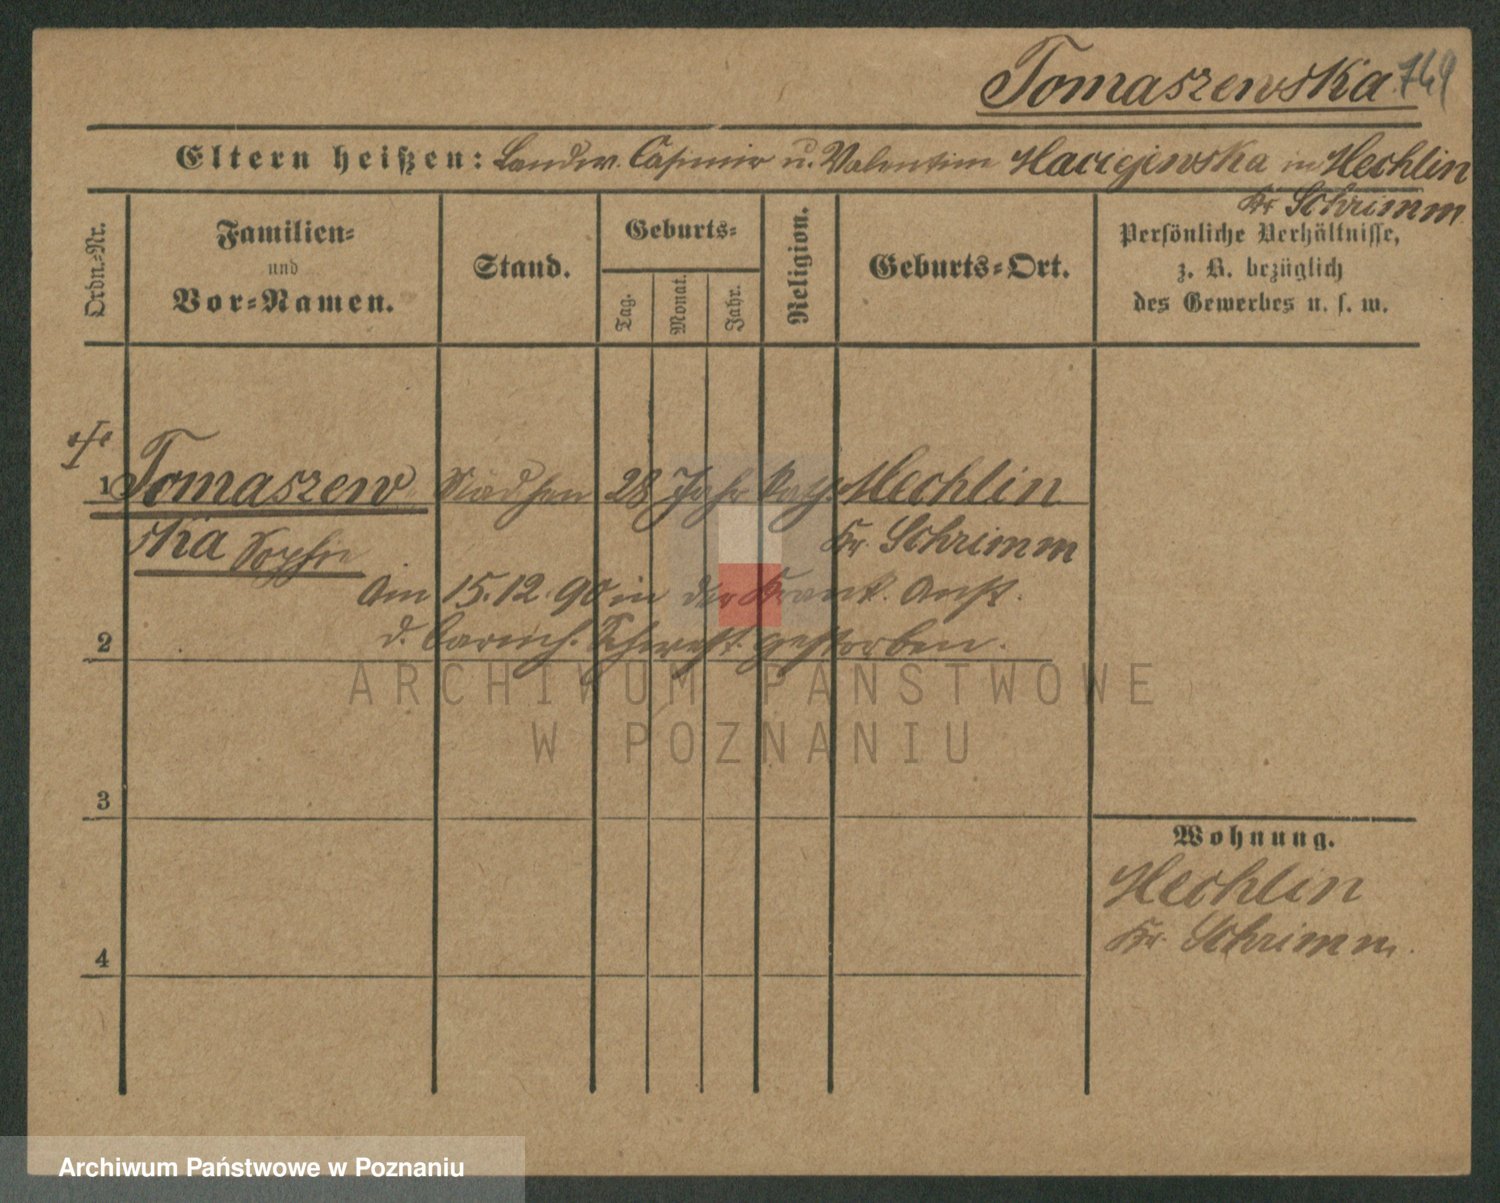 Tomaszewska 749
Eltern heißen: Landw. Casimir u. Valentin Maciejewska in Mechlin
Kr Schrimm
Ordn.-Nr.
Familien-
und
Vor-Namen.
Stand.
Geburts-
Tag.
Monat.
Jahr.
Religion.
Geburts-Ort.
Persönliche Verhältnisse,
z. B. bezüglich
des Gewerbes u. s. w.
1 Tomaszew Mädchen 28 Jahr kath. Mechlin
ska Sophie Kr. Schrimm
Am 15.12.90 in der Krank. Anst.
2 d. barmh. Schwest. gestorben.
3
4
Wohnung.
Mechlin
Kr. Schrimm.
ARCHIWUM PAŃSTWOWE
W POZNANIU
Archiwum Państwowe w Poznaniu